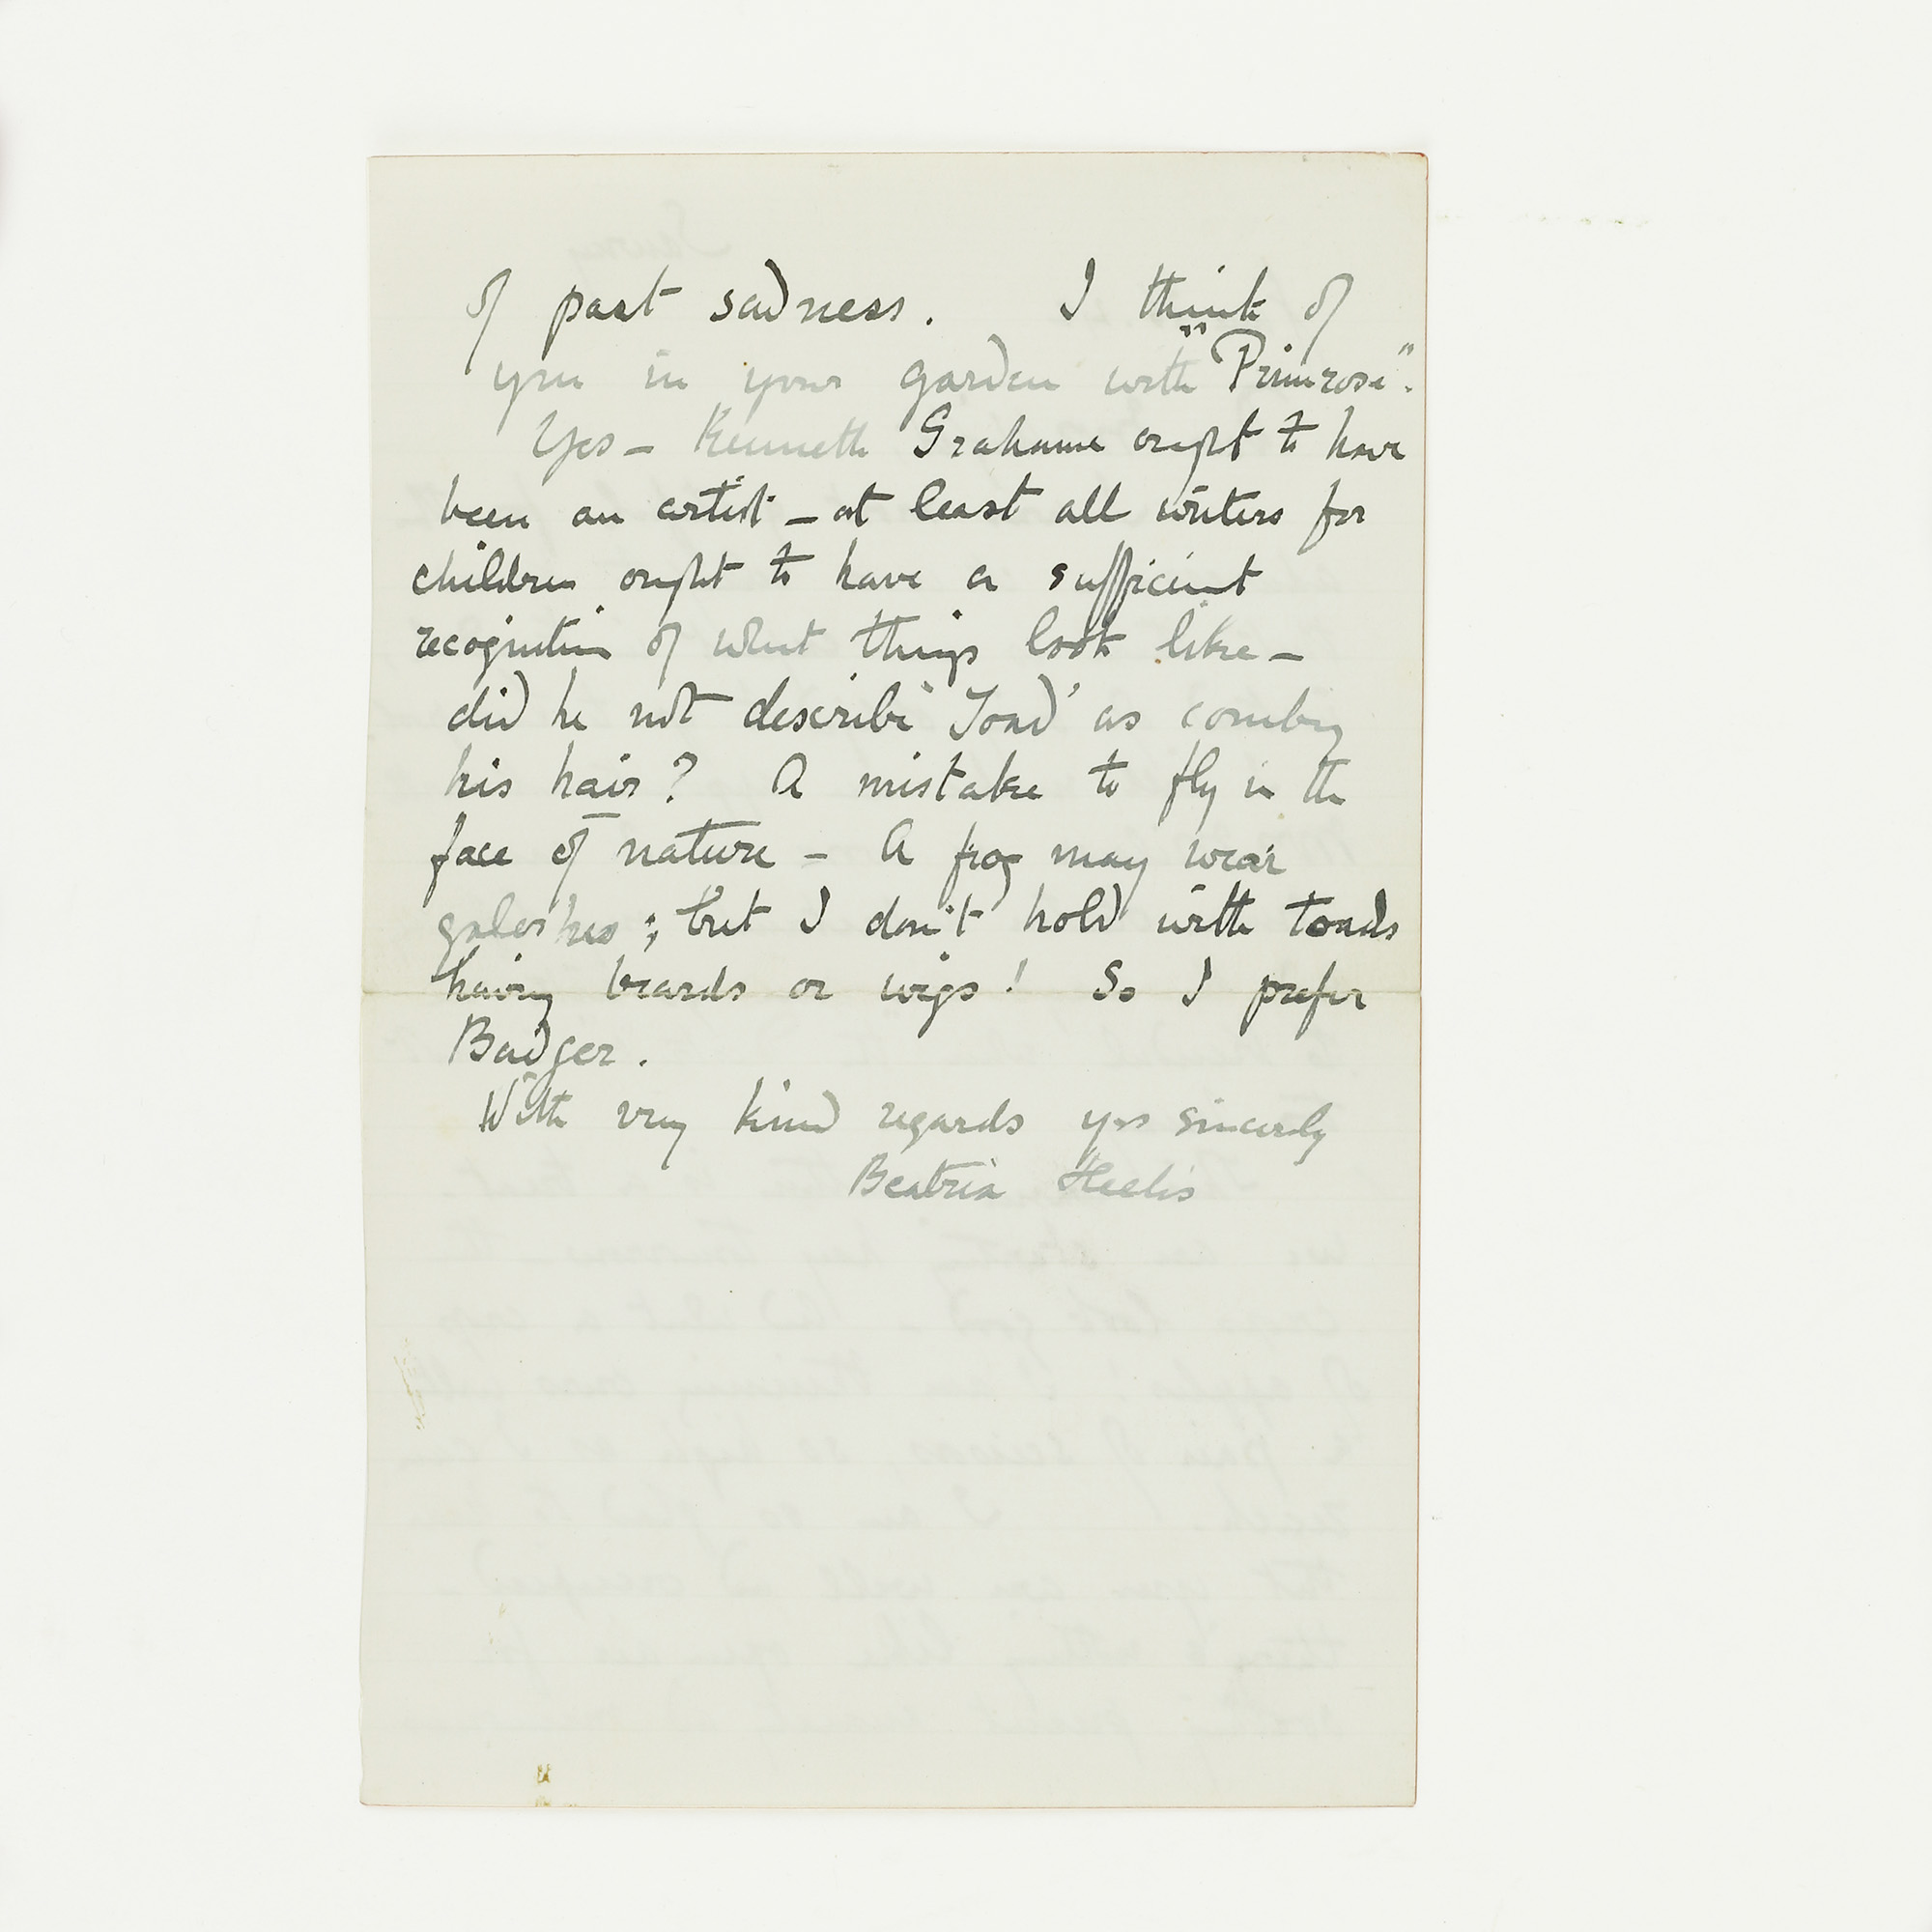 of past sadness. I think of
you in your garden with "Primrose".
Yes – Kenneth Grahame ought to have
been an artist – at least all writers for
children ought to have a sufficient
recognition of what things look like –
did he not describe 'Toad' as combing
his hair? A mistake to fly in the
face of nature – A frog may wear
galoshes; but I don't hold with toads
having beards or wigs! So I prefer
Badger.
With very kind regards yrs sincerely
Beatrix Heelis